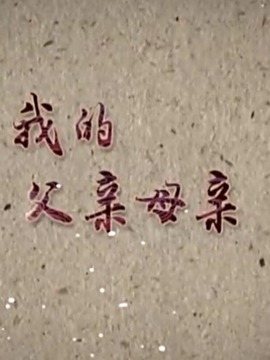 我的
父亲母亲